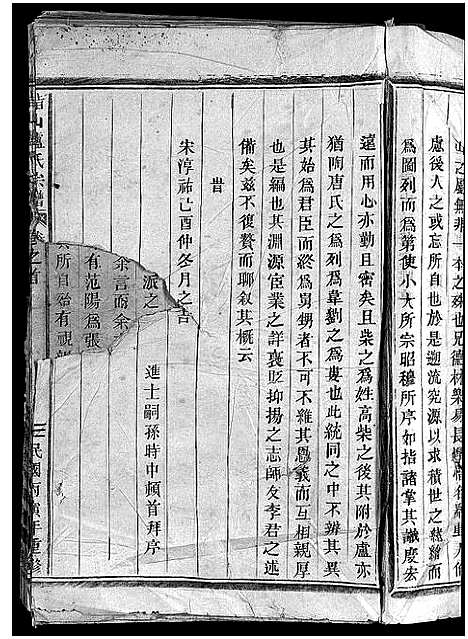 慮後人之或忘所自也於是遡流究源以求積世之
爲圖列而爲第使小大所宗昭穆所序如指諸掌其
遠而用心亦勤且密矣且柴之爲姓高柴之後其附於盧亦
猶陶唐氏之爲列爲韋劉之爲婁也此統同之中不辨其異
其始爲君臣而終爲舅甥者不可不維其恩義而互相親厚
也是編也其淵源宦業之詳褒貶抑揚之志師友李君之述
備矣茲不復贅而聊叙其概云
旹
宋淳祐己酉仲冬月之吉
進士嗣孫時中頓首拜序
派之
余言而余
有范陽爲張
所自始有視
山盧氏宗譜 卷之首
民國
重修